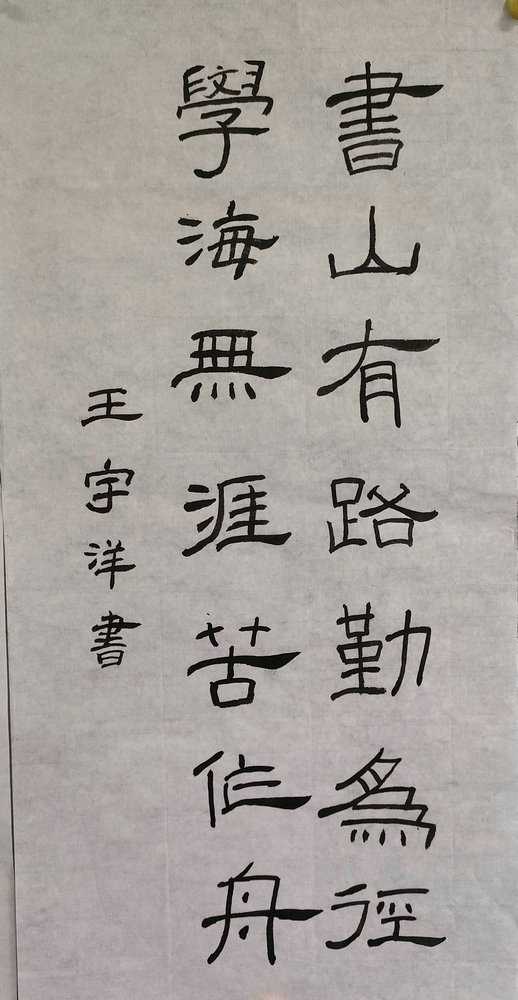 書山有路勤為徑
學海無涯苦作舟
王宇洋書